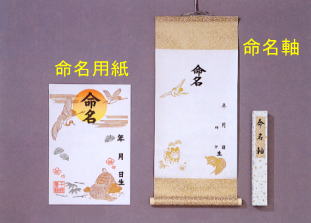 命名用紙
命名
年 月 日生
命名軸
命名
年 月 日生
命名軸